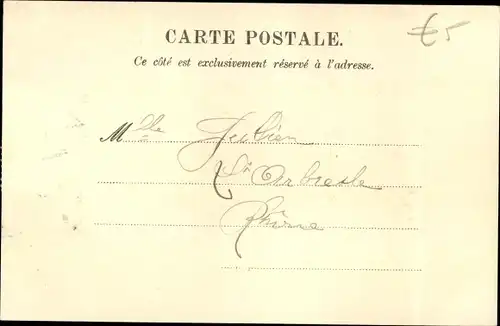 CARTE POSTALE.
€5
Ce côté est exclusivement réservé à l'adresse.
Mlle Julien
L'Arbresle
Rhône